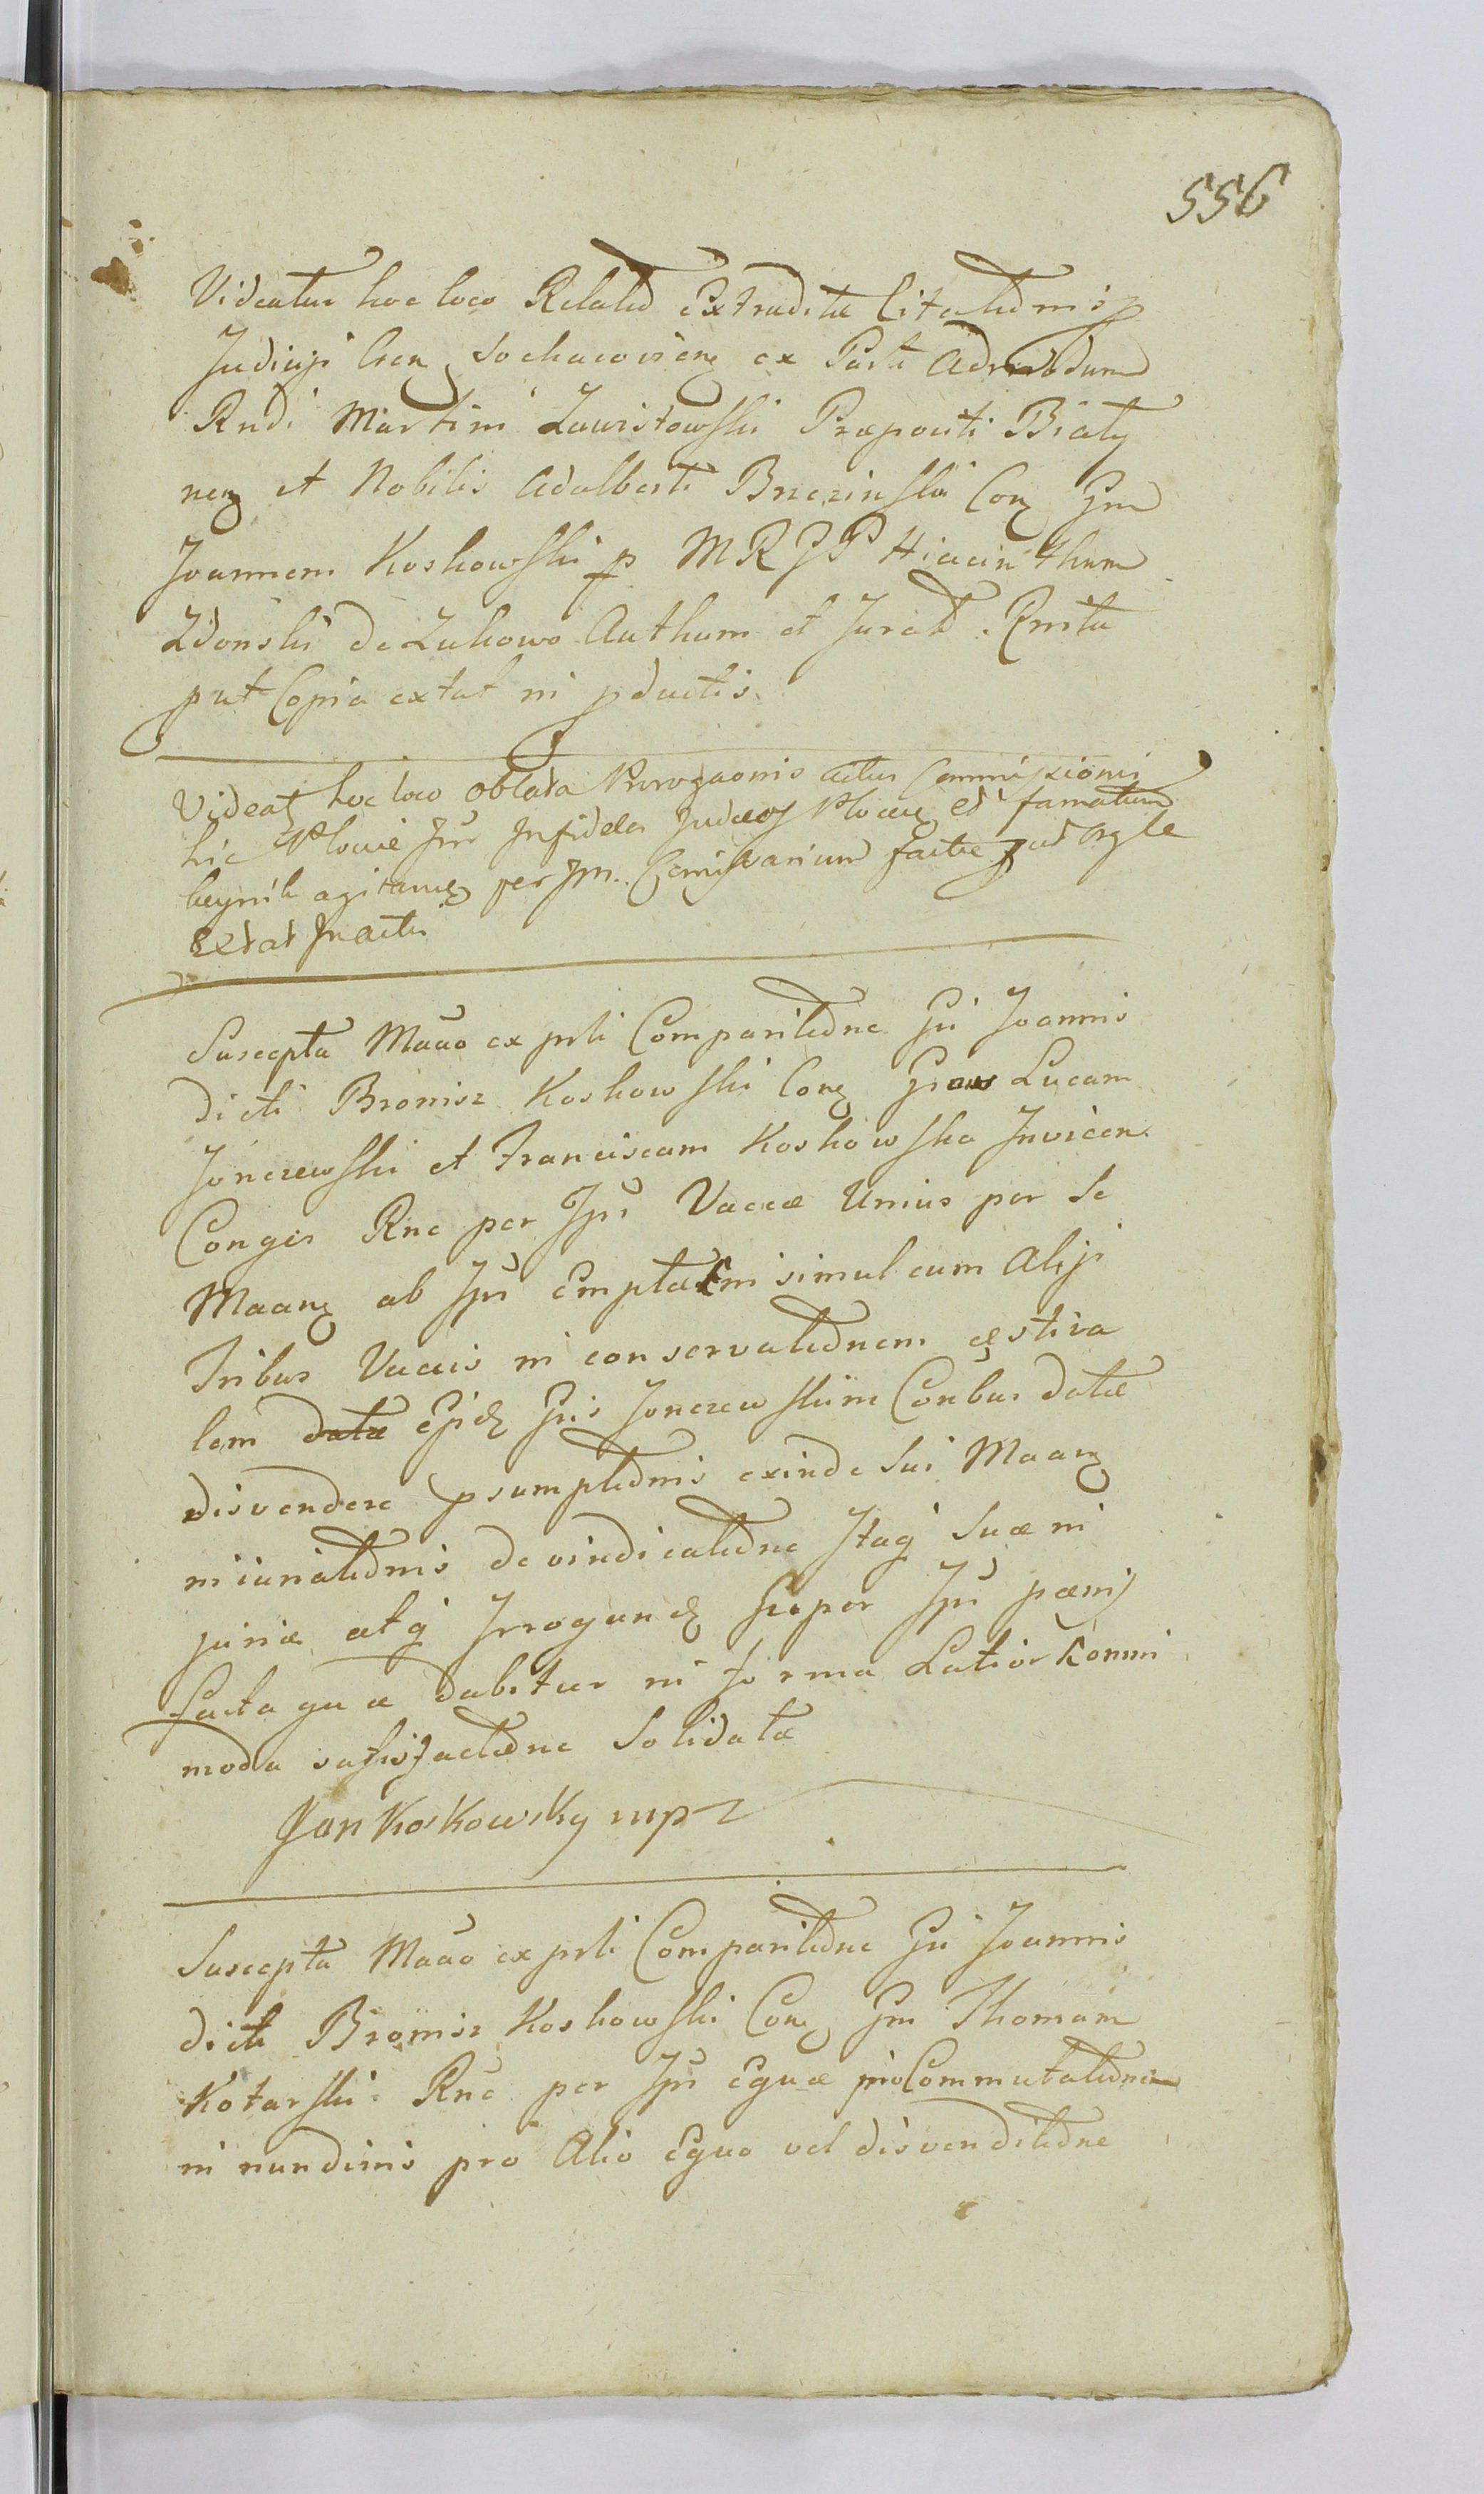 556
Videatur hoc loco Relatio Extraditæ Citationis p
Judicij Cren Sochacovien ex Parte Admodum
Rndi Martini Zawistowski Præpositi Biały
nen et Nobilis Adalberti Brzezinski Con Gm
Joannem Koskowski p MRGP Hiacinthum
Zdonski de Zukowo Authum et Jurat. Rnita
put Copia extat in pductis
Videat hoc loco Oblata Prorogaonis actus Commissionis
hic Plociæ Inr Infideles Judæos Plocen et famatum
agitanæ per Gm. Comissarium factæ put orgle
Extat In actis
Suscepta Maão ex prli Comparitione Gi Joannis
dicti Bronisz Koskowski Con Gnos Lucam
Jonczewski et Franciscam Koskowska Invicen
Conges Rne per Ips Vaccæ Unius per Se
Maanz ab Ips Emptæ simul cum Alijs
Tribus Vaccis in conservationem æstiva
lem data Ejdz Gnis Jonczewskim Conbus datæ
disvendere psumptionis exinde Sui Maanz
iniuriationis de vindicatione Itaq Suæ in
juriæ atq Irrogandz per Ips pænis
facta quæ dabitur in forma Latiori omni
moda satisfactione Solidata
Jan Koskowsky mp
Suscepta Maão ex prli Comparitione Gi Joannis
dicti Bronisz Koskowski Con Gm Thomam
Kotarski Rne per Ips Equæ pro Commutatione
in nundinis pro Alio Equo vel disvenditione